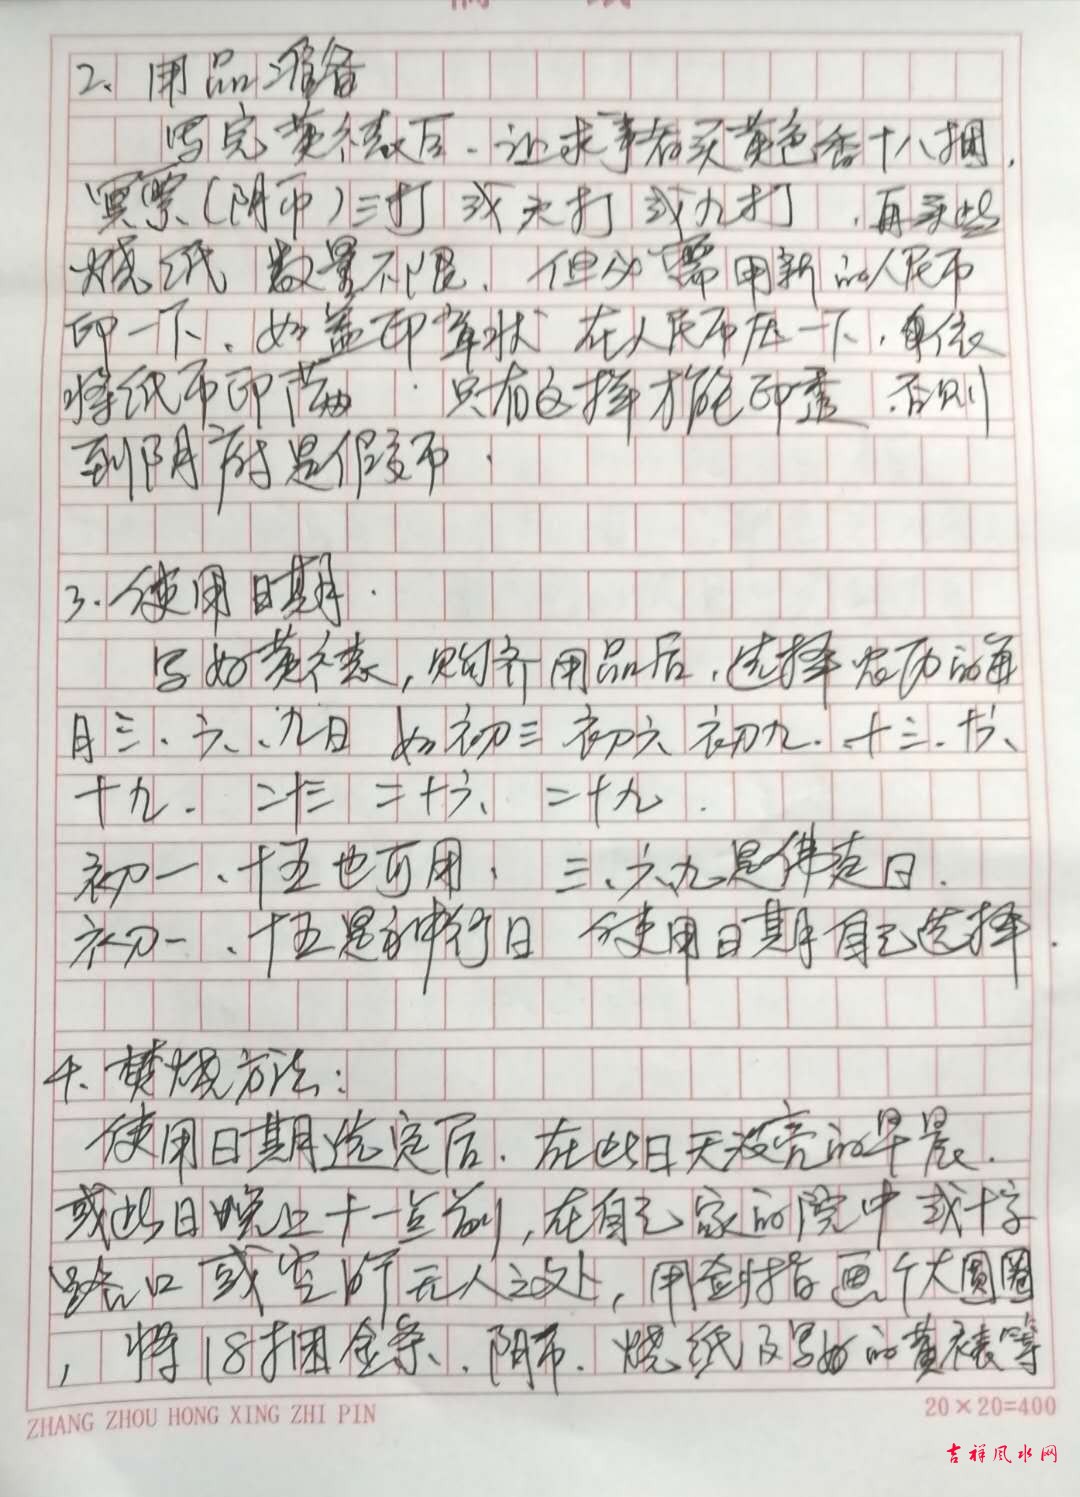 2、用品准备
写完黄裱后．让求事者买黄色香十八捆，
冥票(阴币)三打 或六打 或九打 ．再买些
烧纸 数量不限．但必需用新的人民币
印一下、如盖印章状 在人民币压一下，
将纸币印 只有这样才能印 否则
到阴府是假币．
3．使用日期．
写好黄裱，购齐用品后．选择农历的每
月三、六、九日 如初三 初六 初九．十三．十六、
十九． 二十三 二十六、二十九．
初一、十五也可用． 三、六、九是佛走日．
初一、十五是神行日 使用日期自己选择．
4、焚烧方法：
使用日期选定后．在此日天没亮的早晨．
或此日晚上十一点前，在自己家的院中 或十字
路口 或空旷无人之处，用剑指画个大圆圈
，将18捆金条、阴币．烧纸及写好的黄裱等
ZHANG ZHOU HONG XING ZHI PIN
20×20=400
吉祥风水网